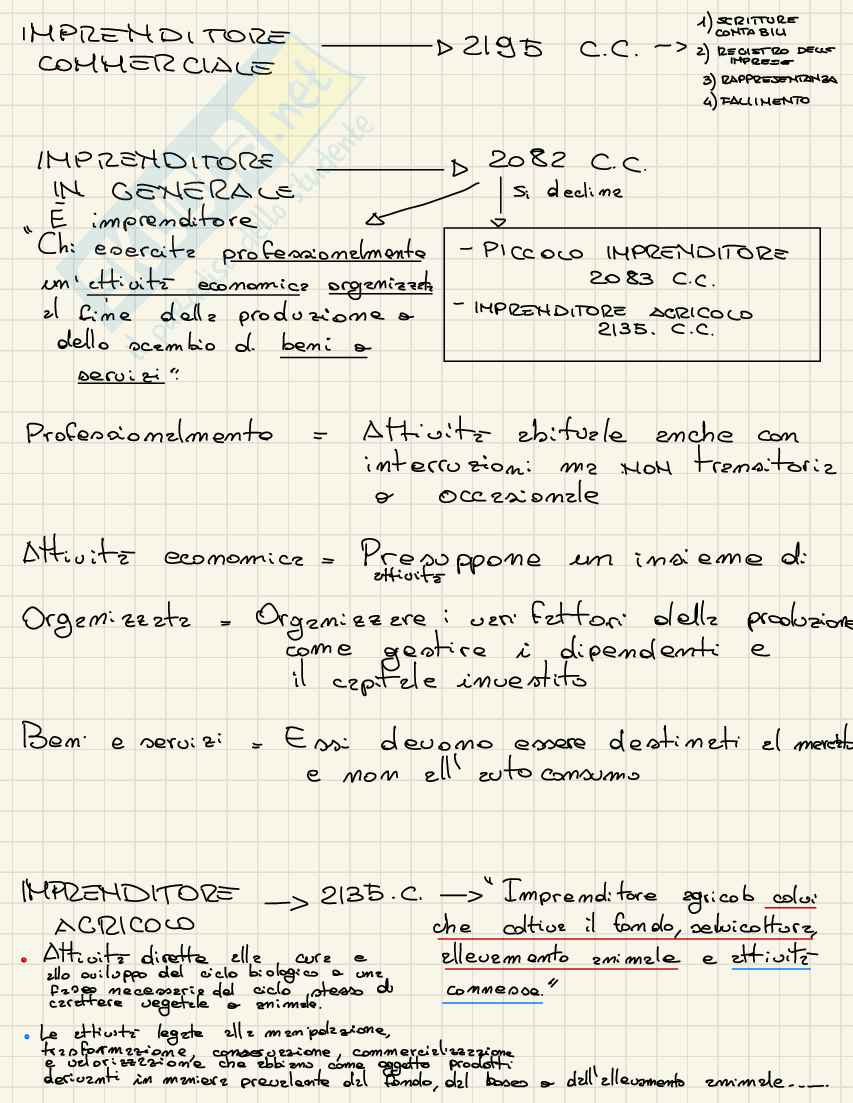 IMPRENDITORE COMMERCIALE → 2195 C.C. →
1) SCRITTURE CONTABILI
2) REGISTRO DELLE IMPRESE
3) RAPPRESENTANZA
4) FALLIMENTO
IMPRENDITORE IN GENERALE → 2082 C.C.
si declina
- PICCOLO IMPRENDITORE
2083 C.C.
- IMPRENDITORE AGRICOLO
2135. C.C.
"È imprenditore
Chi esercita professionalmente
un'attività economica organizzata
al fine della produzione o
dello scambio di beni o
servizi".
Professionalmente = Attività abituale anche con
interruzioni ma NON transitoria
o occasionale
Attività economica = Presuppone un insieme di
attività
Organizzata = Organizzare i vari fattori della produzione
come gestire i dipendenti e
il capitale investito
Beni e servizi = Essi devono essere destinati al mercato
e non all'autoconsumo
IMPRENDITORE AGRICOLO → 2135.C. → "Imprenditore agricolo colui
che coltiva il fondo, selvicoltura,
allevamento animale e attività
connesse."
• Attività diretta alla cura e
allo sviluppo del ciclo biologico o una
fase necessaria del ciclo stesso di
carattere vegetale o animale.
• Le attività legate alla manipolazione,
trasformazione, conservazione, commercializzazione
e valorizzazione che abbiano come oggetto prodotti
derivanti in maniera prevalente dal fondo, dal bosco o dall'allevamento animale.....
.net
il paradiso dello studente